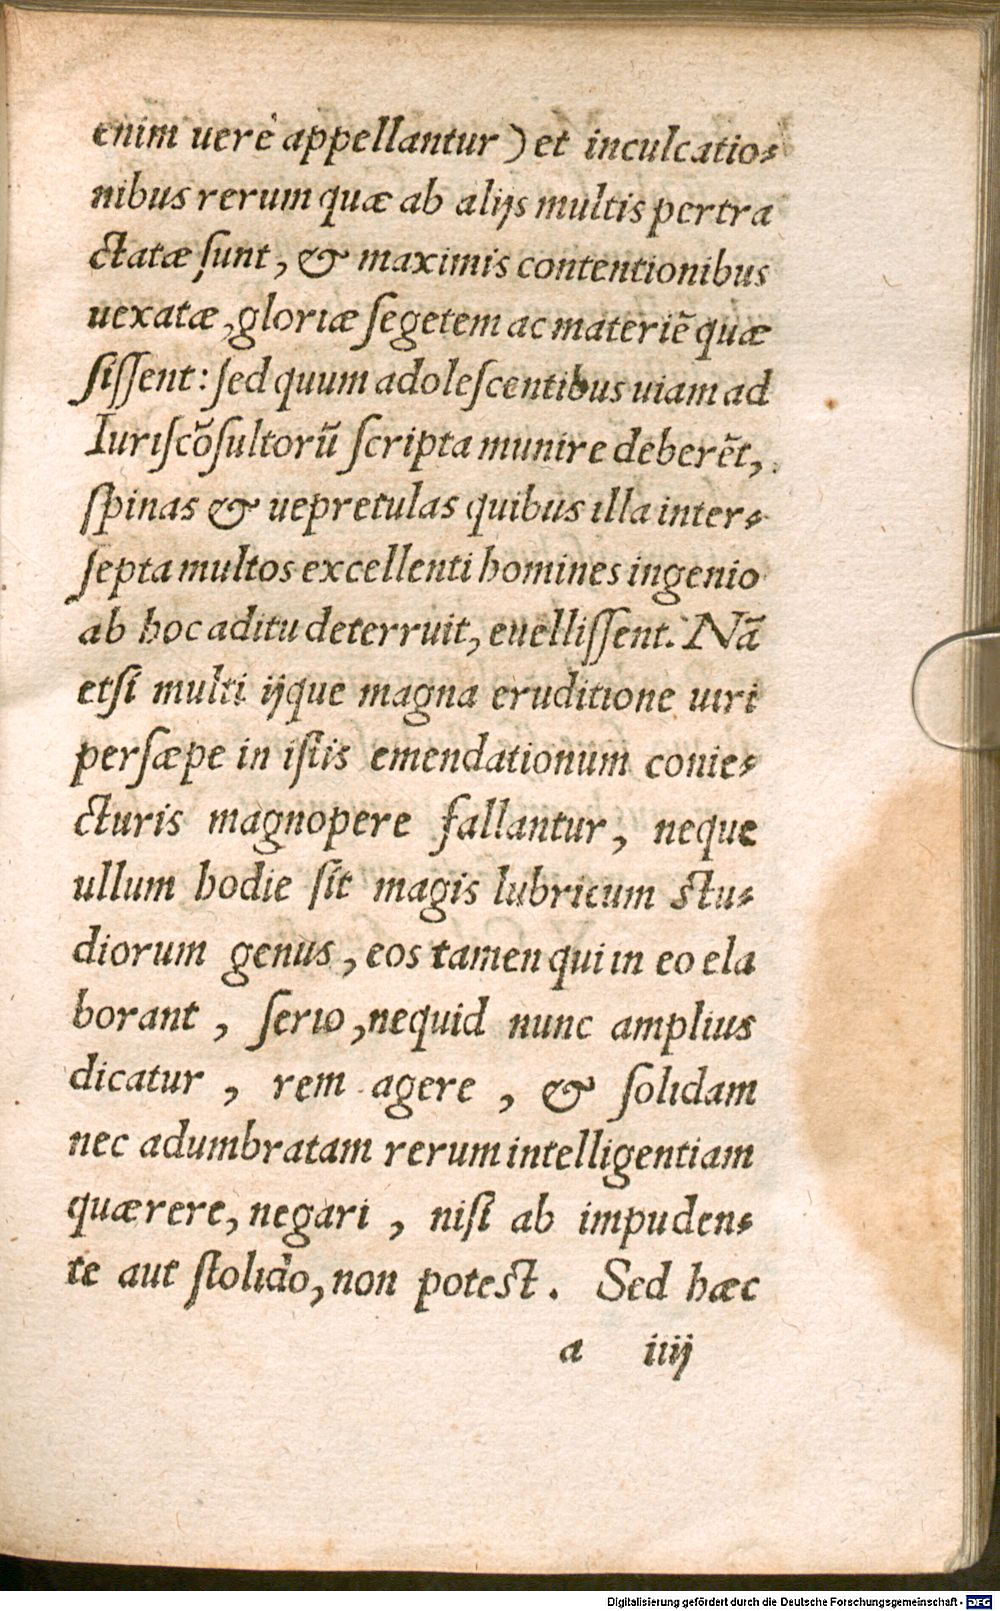 enim uerè appellantur) et inculcatio-
nibus rerum quæ ab alijs multis pertra
ctatæ ſunt, & maximis contentionibus
uexatæ, gloriæ ſegetem ac materiē quæ
ſiſſent: ſed quum adoleſcentibus uiam ad
Iuriſcōſultorū ſcripta munire deberēt,
ſpinas & uepretulas quibus illa inter-
ſepta multos excellenti homines ingenio
ab hoc aditu deterruit, euelliſſent. Nā
etſi multi ijque magna eruditione uiri
perſæpe in iſtis emendationum conie-
cturis magnopere fallantur, neque
ullum hodie ſit magis lubricum ſtu-
diorum genus, eos tamen qui in eo ela
borant, ſerio, nequid nunc amplius
dicatur, rem agere, & ſolidam
nec adumbratam rerum intelligentiam
quærere, negari, niſi ab impuden-
te aut ſtolido, non poteſt. Sed hæc
a iiij
Digitalisierung gefördert durch die Deutsche Forschungsgemeinschaft - DFG